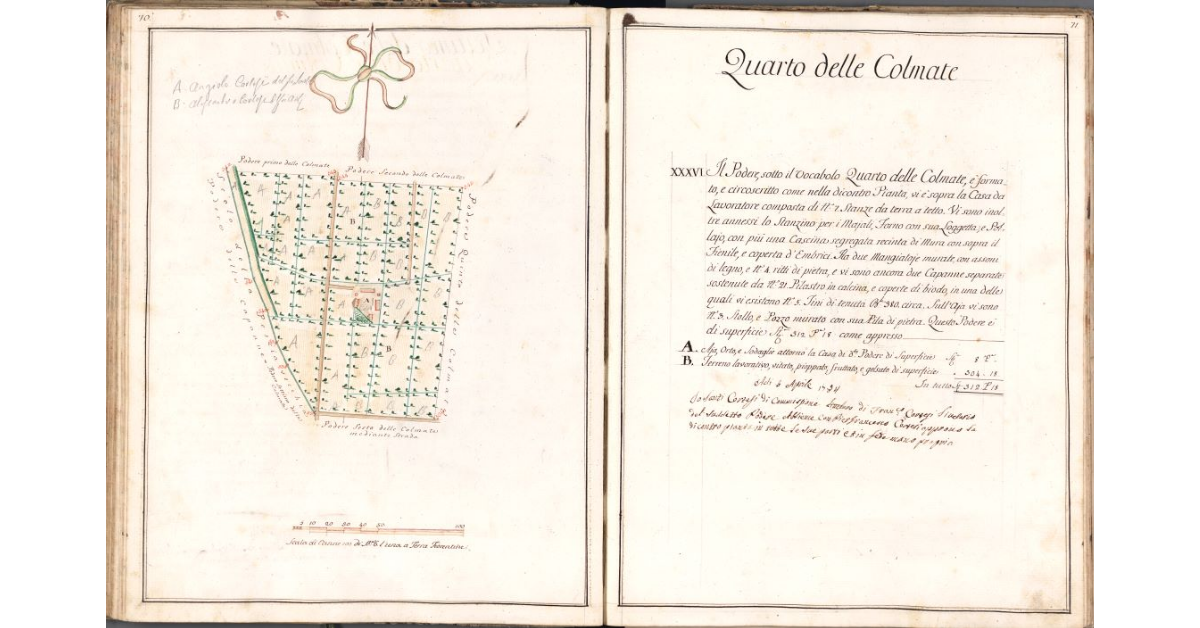 70.
A. Angiolo Cortesi
B.
Podere primo delle Colmate
Podere Secondo delle Colmate
Podere Quinto delle Colmate
Podere Sesto delle Colmate
mediante Strada
5 10 20 30 40 50 100
Scala di Canne 100 di l'una a Terra Fiorentine.
71
Quarto delle Colmate
XXXVI Il Podere, sotto il Vocabolo Quarto delle Colmate, è forma-
to, e circoscritto come nella dicontro Pianta, vi è sopra la Casa da
Lavoratore composta di N.º 7. Stanze da terra a tetto. Vi sono inol-
tre annessi lo Stanzino per i Majali, Forno con sua Loggetta, e Pol-
lajo, con più una Cascina segregata recinta di Mura con sopra il
Fienile, e coperta d'Embrici. Ha due Mangiatoje murate, con assoni
di legno, e N.º 4. ritti di pietra, e vi sono ancora due Capanne separate
sostenute da N.º 21. Pilastro in calcina, e coperte di biodo, in una delle
quali vi esistono N.º 5. Tini di tenuta B.li 380. circa. Sull'Aja vi sono
N.º 3. Stollo, e Pozzo murato con sua Pila di pietra. Questo Podere è
di superficie 312 P. 18 come appresso
A. Aja, Orto, e Sodaglie attorno la Casa di d.º Podere di Superficie 8 P.
B. Terreno lavorativo, vitato, pioppato, fruttato, e gelsato di superficie 304. 18
In tutto 312 P. 18
Adi 6 Aprile
Io Santi Cortesi di Commissione di Cortesi
del Suddetto Podere Assieme con Pierfrancesco Cortesi approvo la
dicontro pianta in tutte le sue parti e in fede mano propria